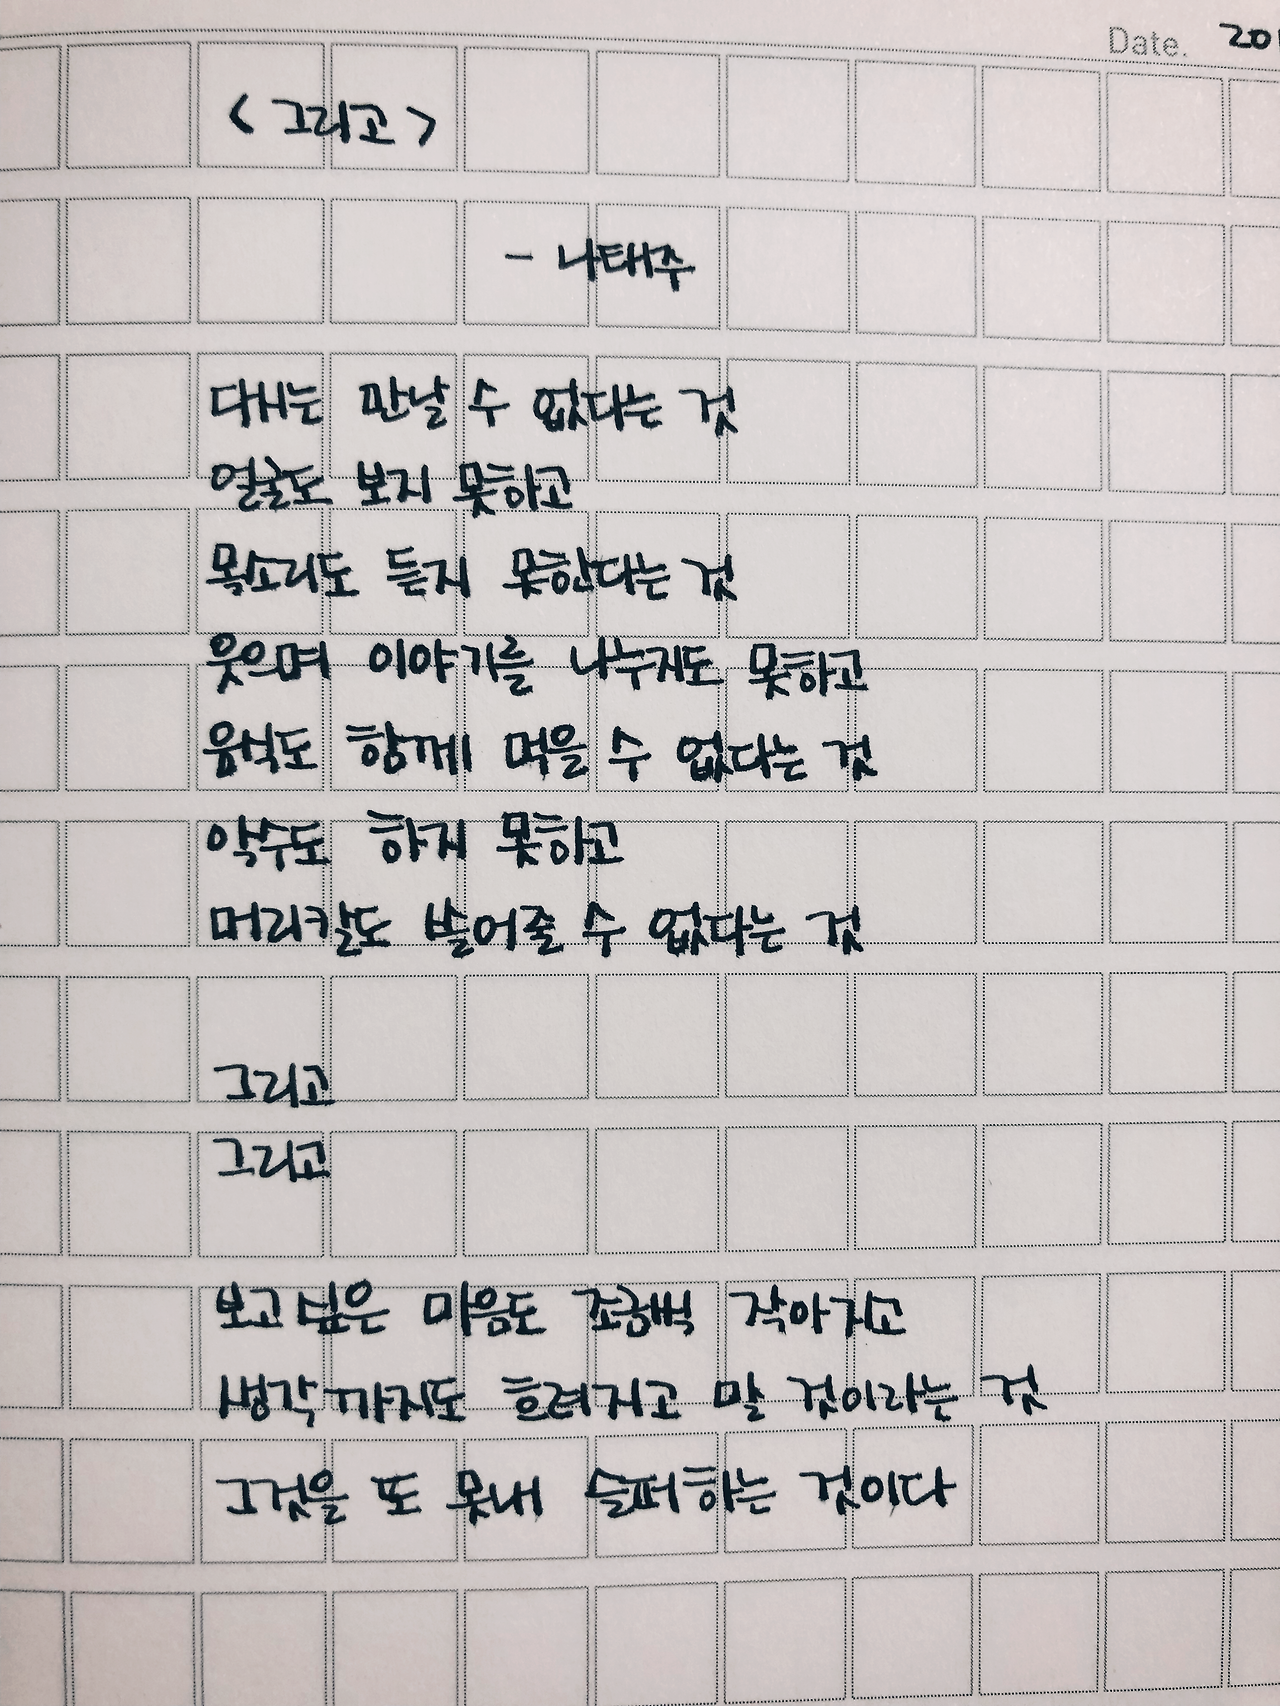 Date. 201
< 그리고 >
- 나태주
다시는 만날 수 없다는 것
얼굴도 보지 못하고
목소리도 듣지 못한다는 것
웃으며 이야기를 나누지도 못하고
음식도 함께 먹을 수 없다는 것
악수도 하지 못하고
머리칼도 쓸어줄 수 없다는 것
그리고
그리고
보고싶은 마음도 조금씩 작아지고
생각까지도 흐려지고 말 것이라는 것
그것을 또 못내 슬퍼하는 것이다